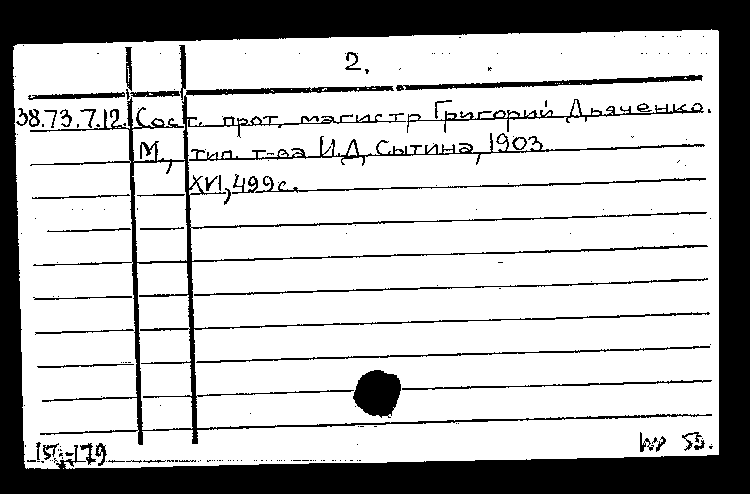 2.
38.73.7.12. Сост. прот. магистр Григорий Дьяченко.
М., тип. т-ва И.Д. Сытина, 1903
XVI, 499с.
179